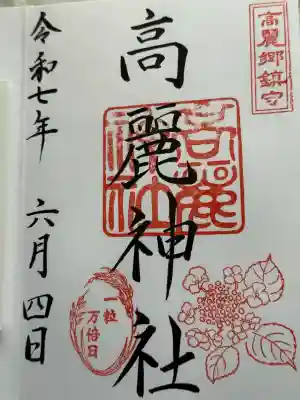 高麗郷鎮守
高麗神社
高麗神社
一粒
万倍日
令和七年 六月四日